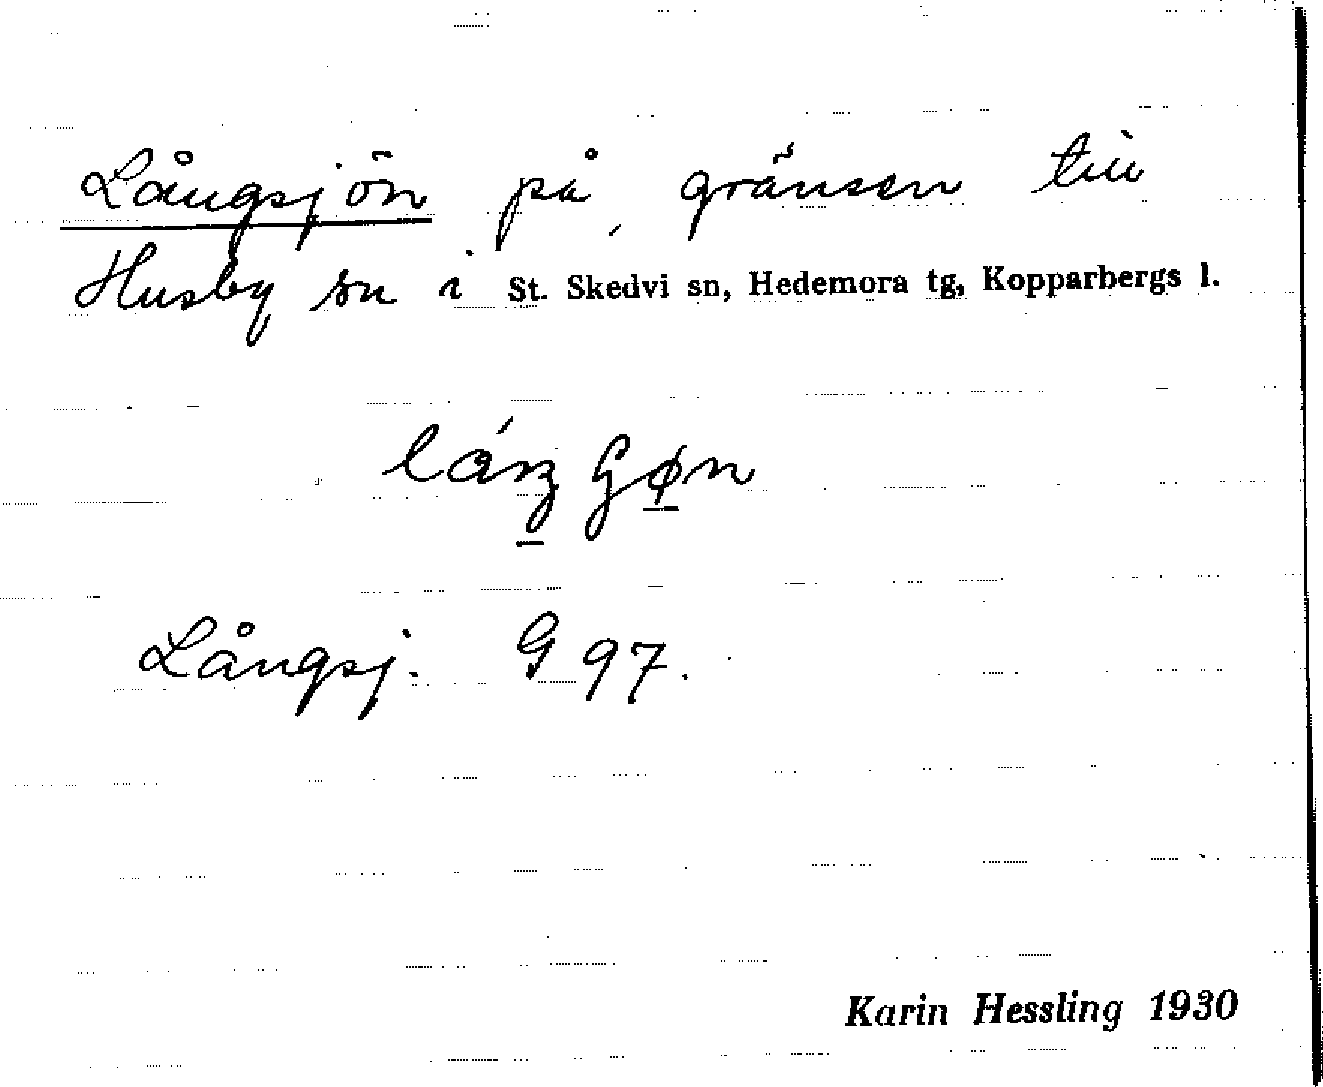 Långsjön på gränsen till
Husby sn i St. Skedvi sn, Hedemora tg, Kopparbergs l.
Långsj. G 97.
Karin Hessling 1930